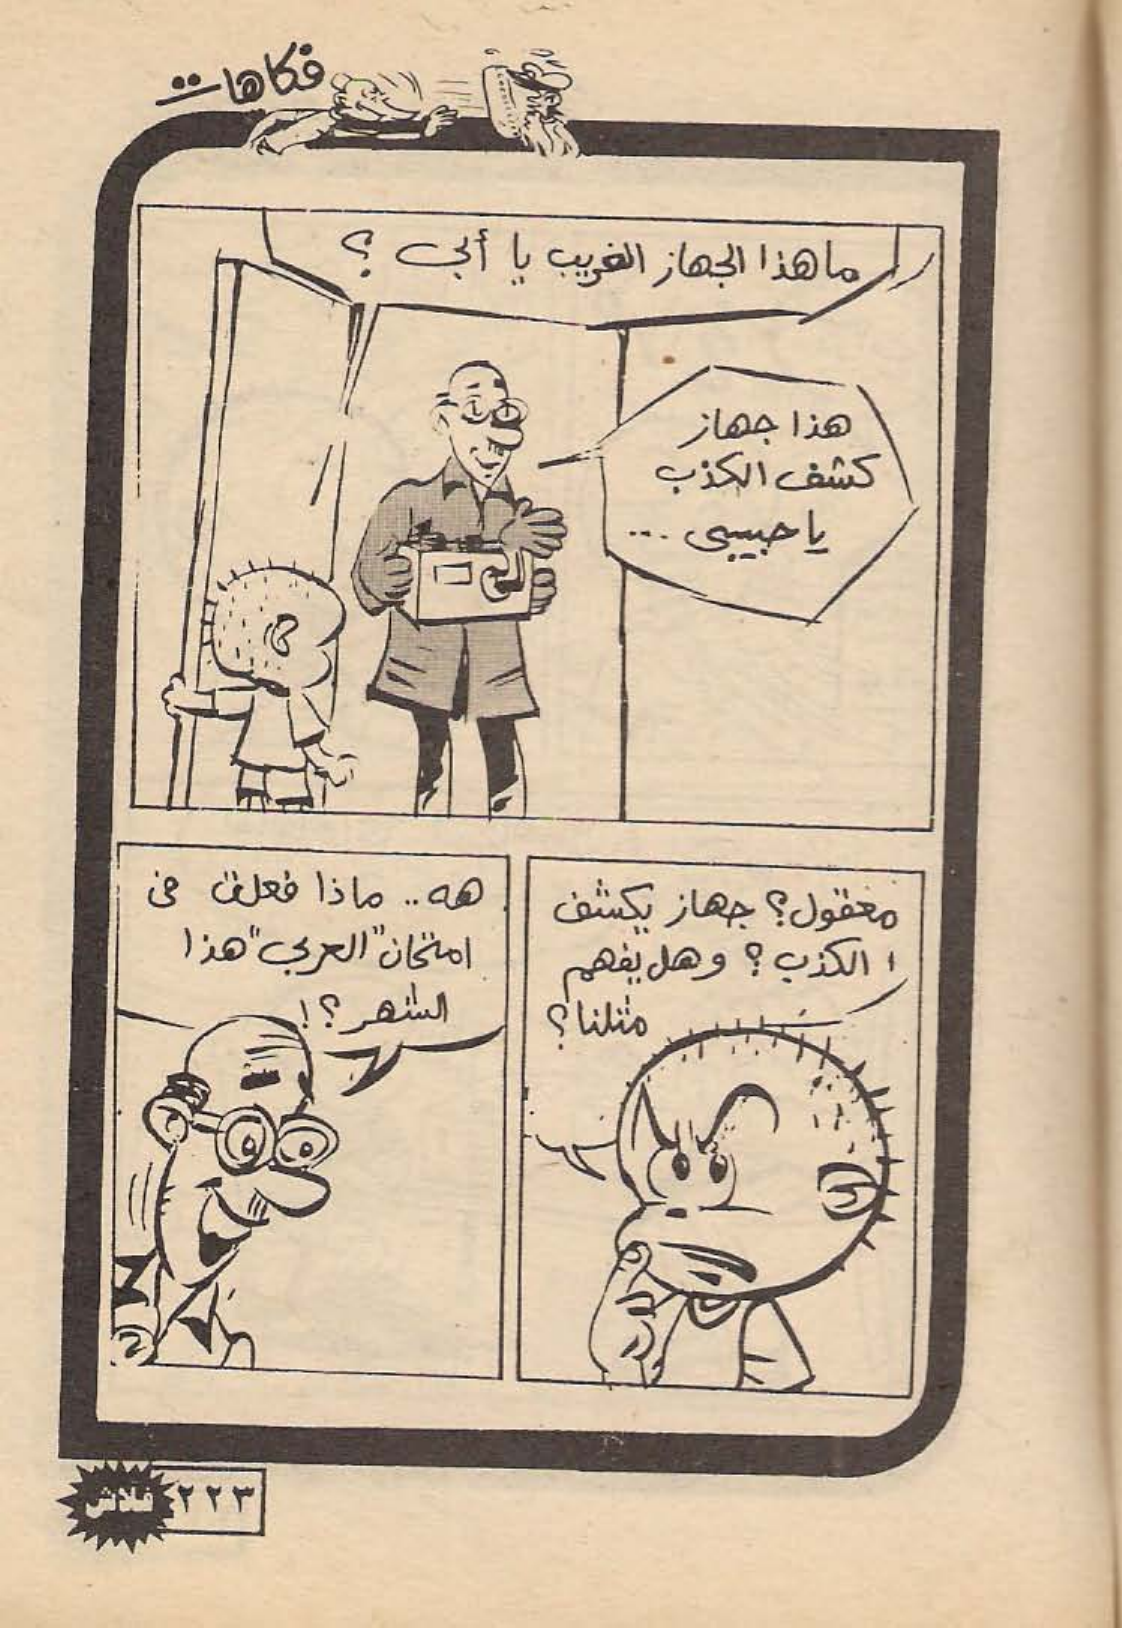 فكاهات
ما هذا الجهاز الغريب يا أبى ؟
هذا جهاز
كشف الكذب
يا حبيبى ...
معقول؟ جهاز يكشف
الكذب؟ وهل يفهم
مثلنا؟
هه.. ماذا فعلت فى
امتحان "العربى" هذا
الشهر؟!
٢٢٣
فلاش